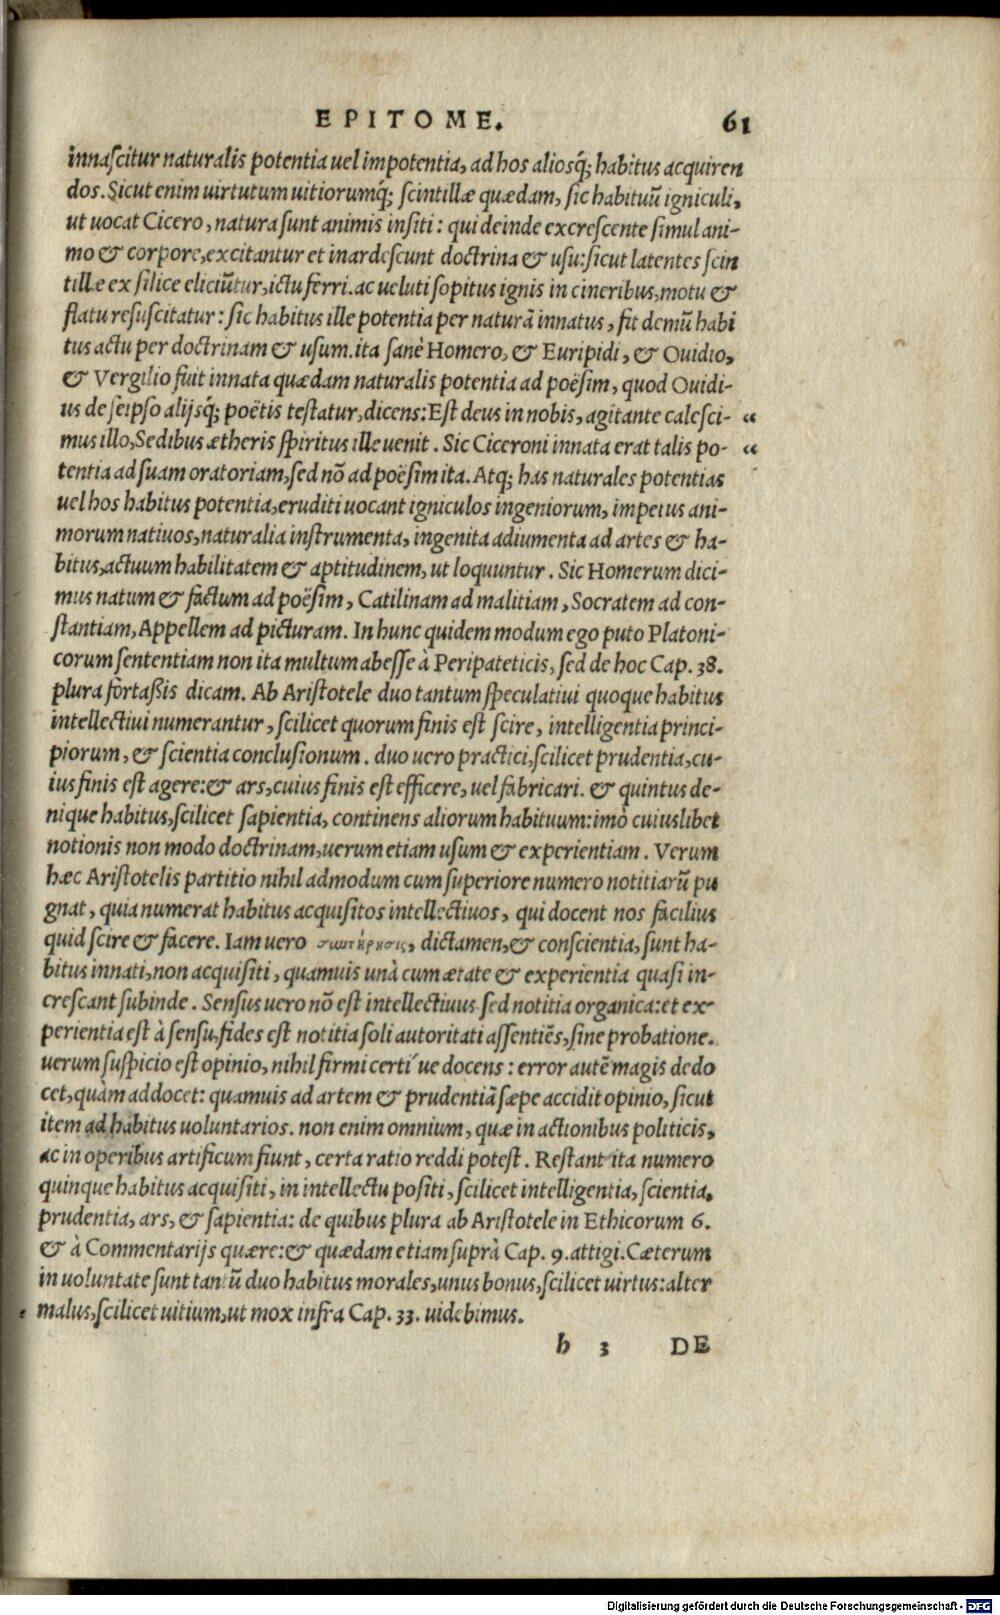 EPITOME. 61
innascitur naturalis potentia uel impotentia, ad hos aliosq́; habitus acquiren
dos. Sicut enim uirtutum uitiorumq́; scintillæ quædam, sic habituũ igniculi,
ut uocat Cicero, natura sunt animis insiti: qui deinde excrescente simul ani-
mo & corpore, excitantur et inardescunt doctrina & usu: sicut latentes scin
tillæ ex silice eliciũtur, ictu ferri. ac ueluti sopitus ignis in cineribus, motu &
flatu resuscitatur: sic habitus ille potentia per naturã innatus, fit demũ habi
tus actu per doctrinam & usum. ita sanè Homero, & Euripidi, & Ouidio,
& Vergilio fuit innata quædam naturalis potentia ad poësim, quod Ouidi-
us de seipso alijsq́; poëtis testatur, dicens: Est deus in nobis, agitante calesci- “
mus illo, Sedibus ætheris spiritus ille uenit. Sic Ciceroni innata erat talis po- “
tentia ad suam oratoriam, sed nõ ad poësim ita. Atq; has naturales potentias
uel hos habitus potentia, eruditi uocant igniculos ingeniorum, impetus ani-
morum natiuos, naturalia instrumenta, ingenita adiumenta ad artes & ha-
bitus, actuum habilitatem & aptitudinem, ut loquuntur. Sic Homerum dici-
mus natum & factum ad poësim, Catilinam ad malitiam, Socratem ad con-
stantiam, Appellem ad picturam. In hunc quidem modum ego puto Platoni-
corum sententiam non ita multum abesse à Peripateticis, sed de hoc Cap. 38.
plura fortaßis dicam. Ab Aristotele duo tantum speculatiui quoque habitus
intellectiui numerantur, scilicet quorum finis est scire, intelligentia princi-
piorum, & scientia conclusionum. duo uero practici, scilicet prudentia, cu-
ius finis est agere: & ars, cuius finis est efficere, uel fabricari. & quintus de-
nique habitus, scilicet sapientia, continens aliorum habituum: imò cuiuslibet
notionis non modo doctrinam, uerum etiam usum & experientiam. Verum
hæc Aristotelis partitio nihil admodum cum superiore numero notitiarũ pu
gnat, quia numerat habitus acquisitos intellectiuos, qui docent nos facilius
quid scire & facere. Iam uero σωτήρησις, dictamen, & conscientia, sunt ha-
bitus innati, non acquisiti, quamuis unà cum ætate & experientia quasi in-
crescant subinde. Sensus uero nõ est intellectiuus sed notitia organica: et ex-
perientia est à sensu, fides est notitia soli autoritati assentiẽs, sine probatione.
uerum suspicio est opinio, nihil firmi certi´ue docens: error autẽ magis dedo
cet, quàm addocet: quamuis ad artem & prudentiã sæpe accidit opinio, sicut
item ad habitus uoluntarios. non enim omnium, quæ in actionibus politicis,
ac in operibus artificum fiunt, certa ratio reddi potest. Restant ita numero
quinque habitus acquisiti, in intellectu positi, scilicet intelligentia, scientia,
prudentia, ars, & sapientia: de quibus plura ab Aristotele in Ethicorum 6.
& à Commentarijs quære: & quædam etiam suprà Cap. 9. attigi. Cæterum
in uoluntate sunt tantũ duo habitus morales, unus bonus, scilicet uirtus: alter
malus, scilicet uitium, ut mox infra Cap. 33. uidebimus.
h 3 DE
Digitalisierung gefördert durch die Deutsche Forschungsgemeinschaft - DFG